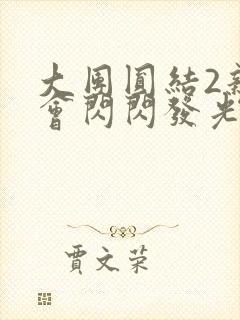 大團圓結2新
會閃閃發光
賈文榮